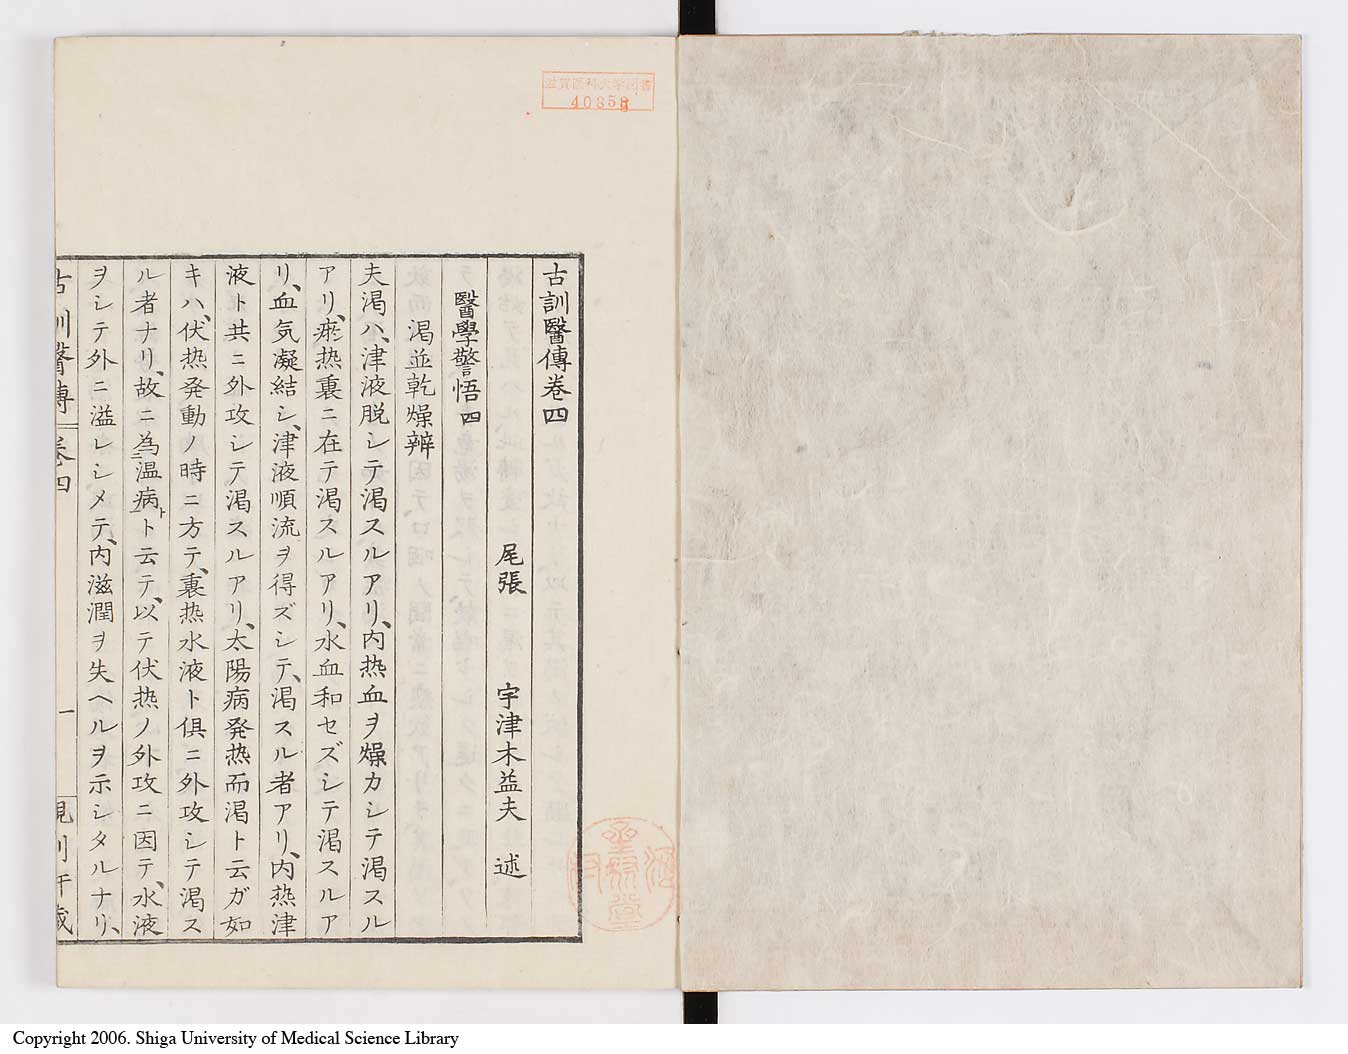 滋賀医科大学図書
40858
古訓醫傳巻四
尾張　宇津木益夫　述
醫學警悟四
渇並乾燥辨
夫渇ハ、津液脱シテ渇スルアリ、内热血ヲ燥カシテ渇スル
アリ、瘀热裏ニ在テ渇スルアリ、水血和セズシテ渇スルア
リ、血気凝結シ、津液順流ヲ得ズシテ、渇スル者アリ、内热津
液ト共ニ外攻シテ渇スルアリ、太陽病発热而渇ト云ガ如
キハ、伏热発動ノ時ニ方テ、裏热水液ト倶ニ外攻シテ渇ス
ル者ナリ、故ニ為温病ト云テ、以テ伏热ノ外攻ニ因テ、水液
ヲシテ外ニ溢レシメテ、内滋潤ヲ失ヘルヲ示シタルナリ、
古訓醫傳　巻四　一
Copyright 2006. Shiga University of Medical Science Library